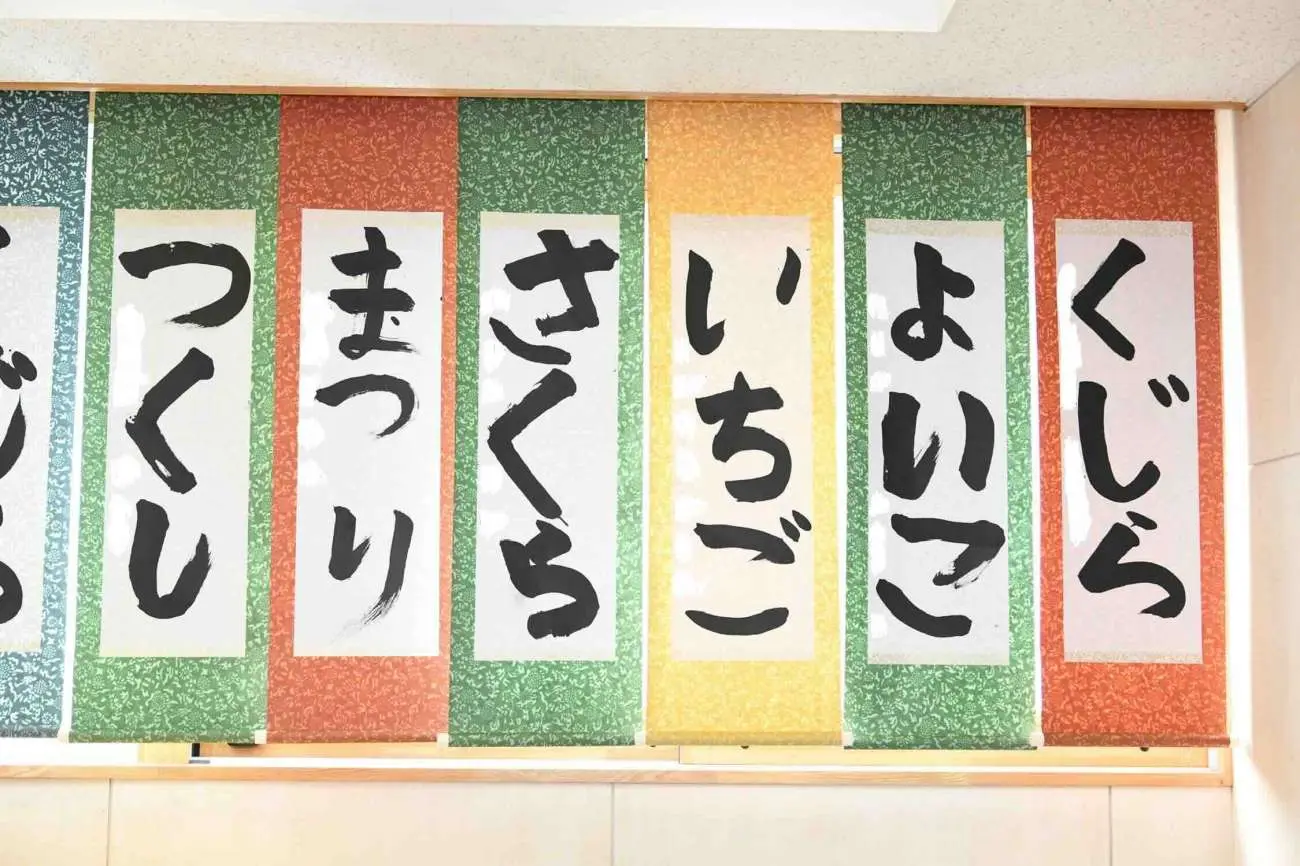 くじら
よいこ
いちご
さくら
まつり
つくし